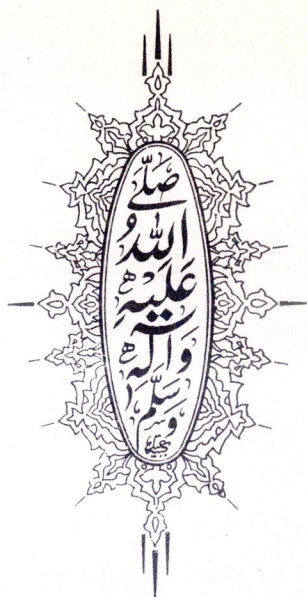 صَلَّى
اللهُ
عَلَيْهِ
وَآلِهِ
وَسَلَّمَ